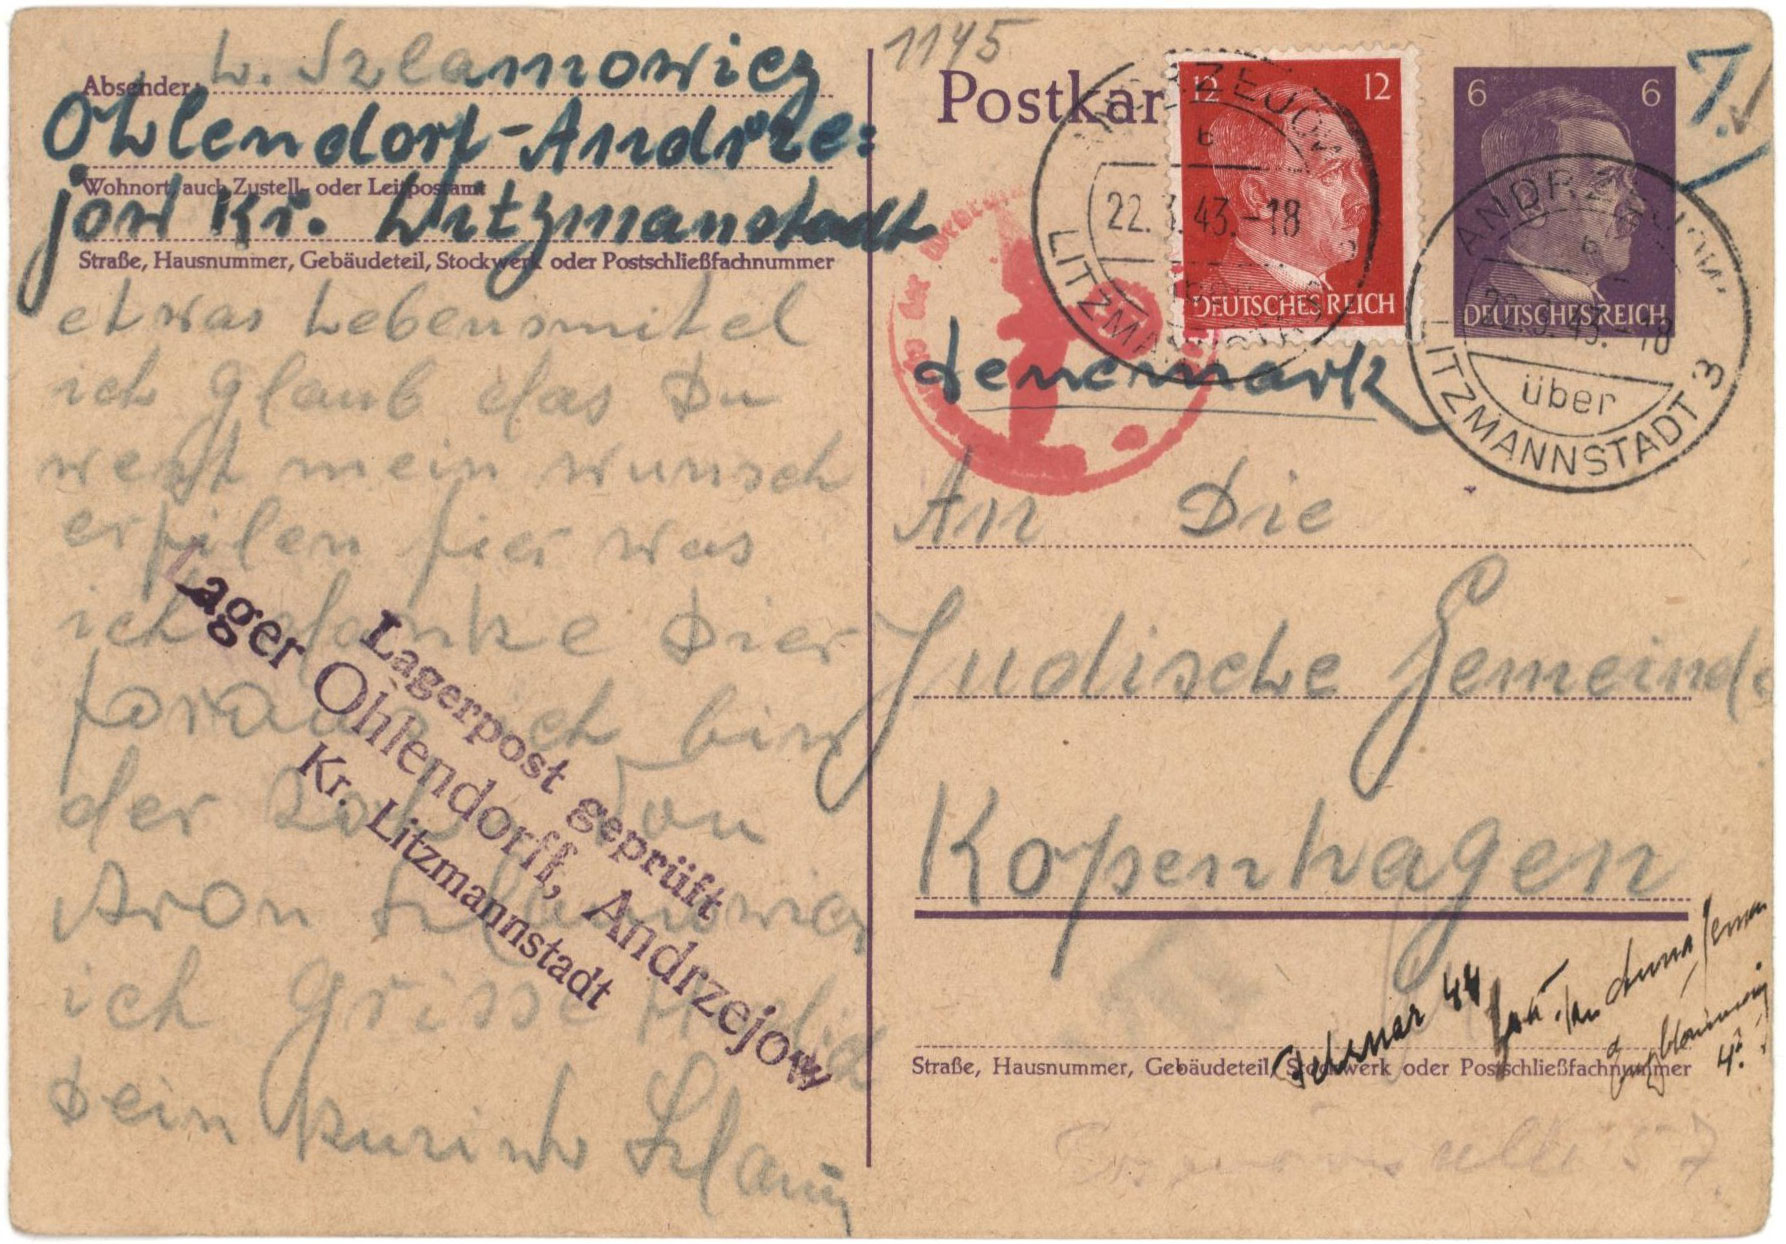 Absender:
L. Szlamowicz
Ohlendorf-Andrze=
Wohnort, auch Zustell- oder Leitpostamt
jow Kr. Litzmanstadt
Straße, Hausnummer, Gebäudeteil, Stockwerk oder Postschließfachnummer
etwas Lebensmitel
ich glaub das Du
werst mein wunsch
erfilen fier was
ich danke Dier
foraus ich bin
der Sohn von
Aron Szlamowicz
ich Grisse
Dein Szlam
Lagerpost geprüft
Lager Ohlendorff, Andrzejow
Kr. Litzmannstadt
1145
Postkar
12 12
DEUTSCHES REICH
6 6
DEUTSCHES REICH
ANDRZEJOW
22.3.43.-18
LITZMANNSTADT 3
ANDRZEJOW
22.3.43.-18
über
LITZMANNSTADT 3
denemark
An Die
Judische Gemeinde
Kopenhagen
44
Straße, Hausnummer, Gebäudeteil, Stockwerk oder Postschließfachnummer
57